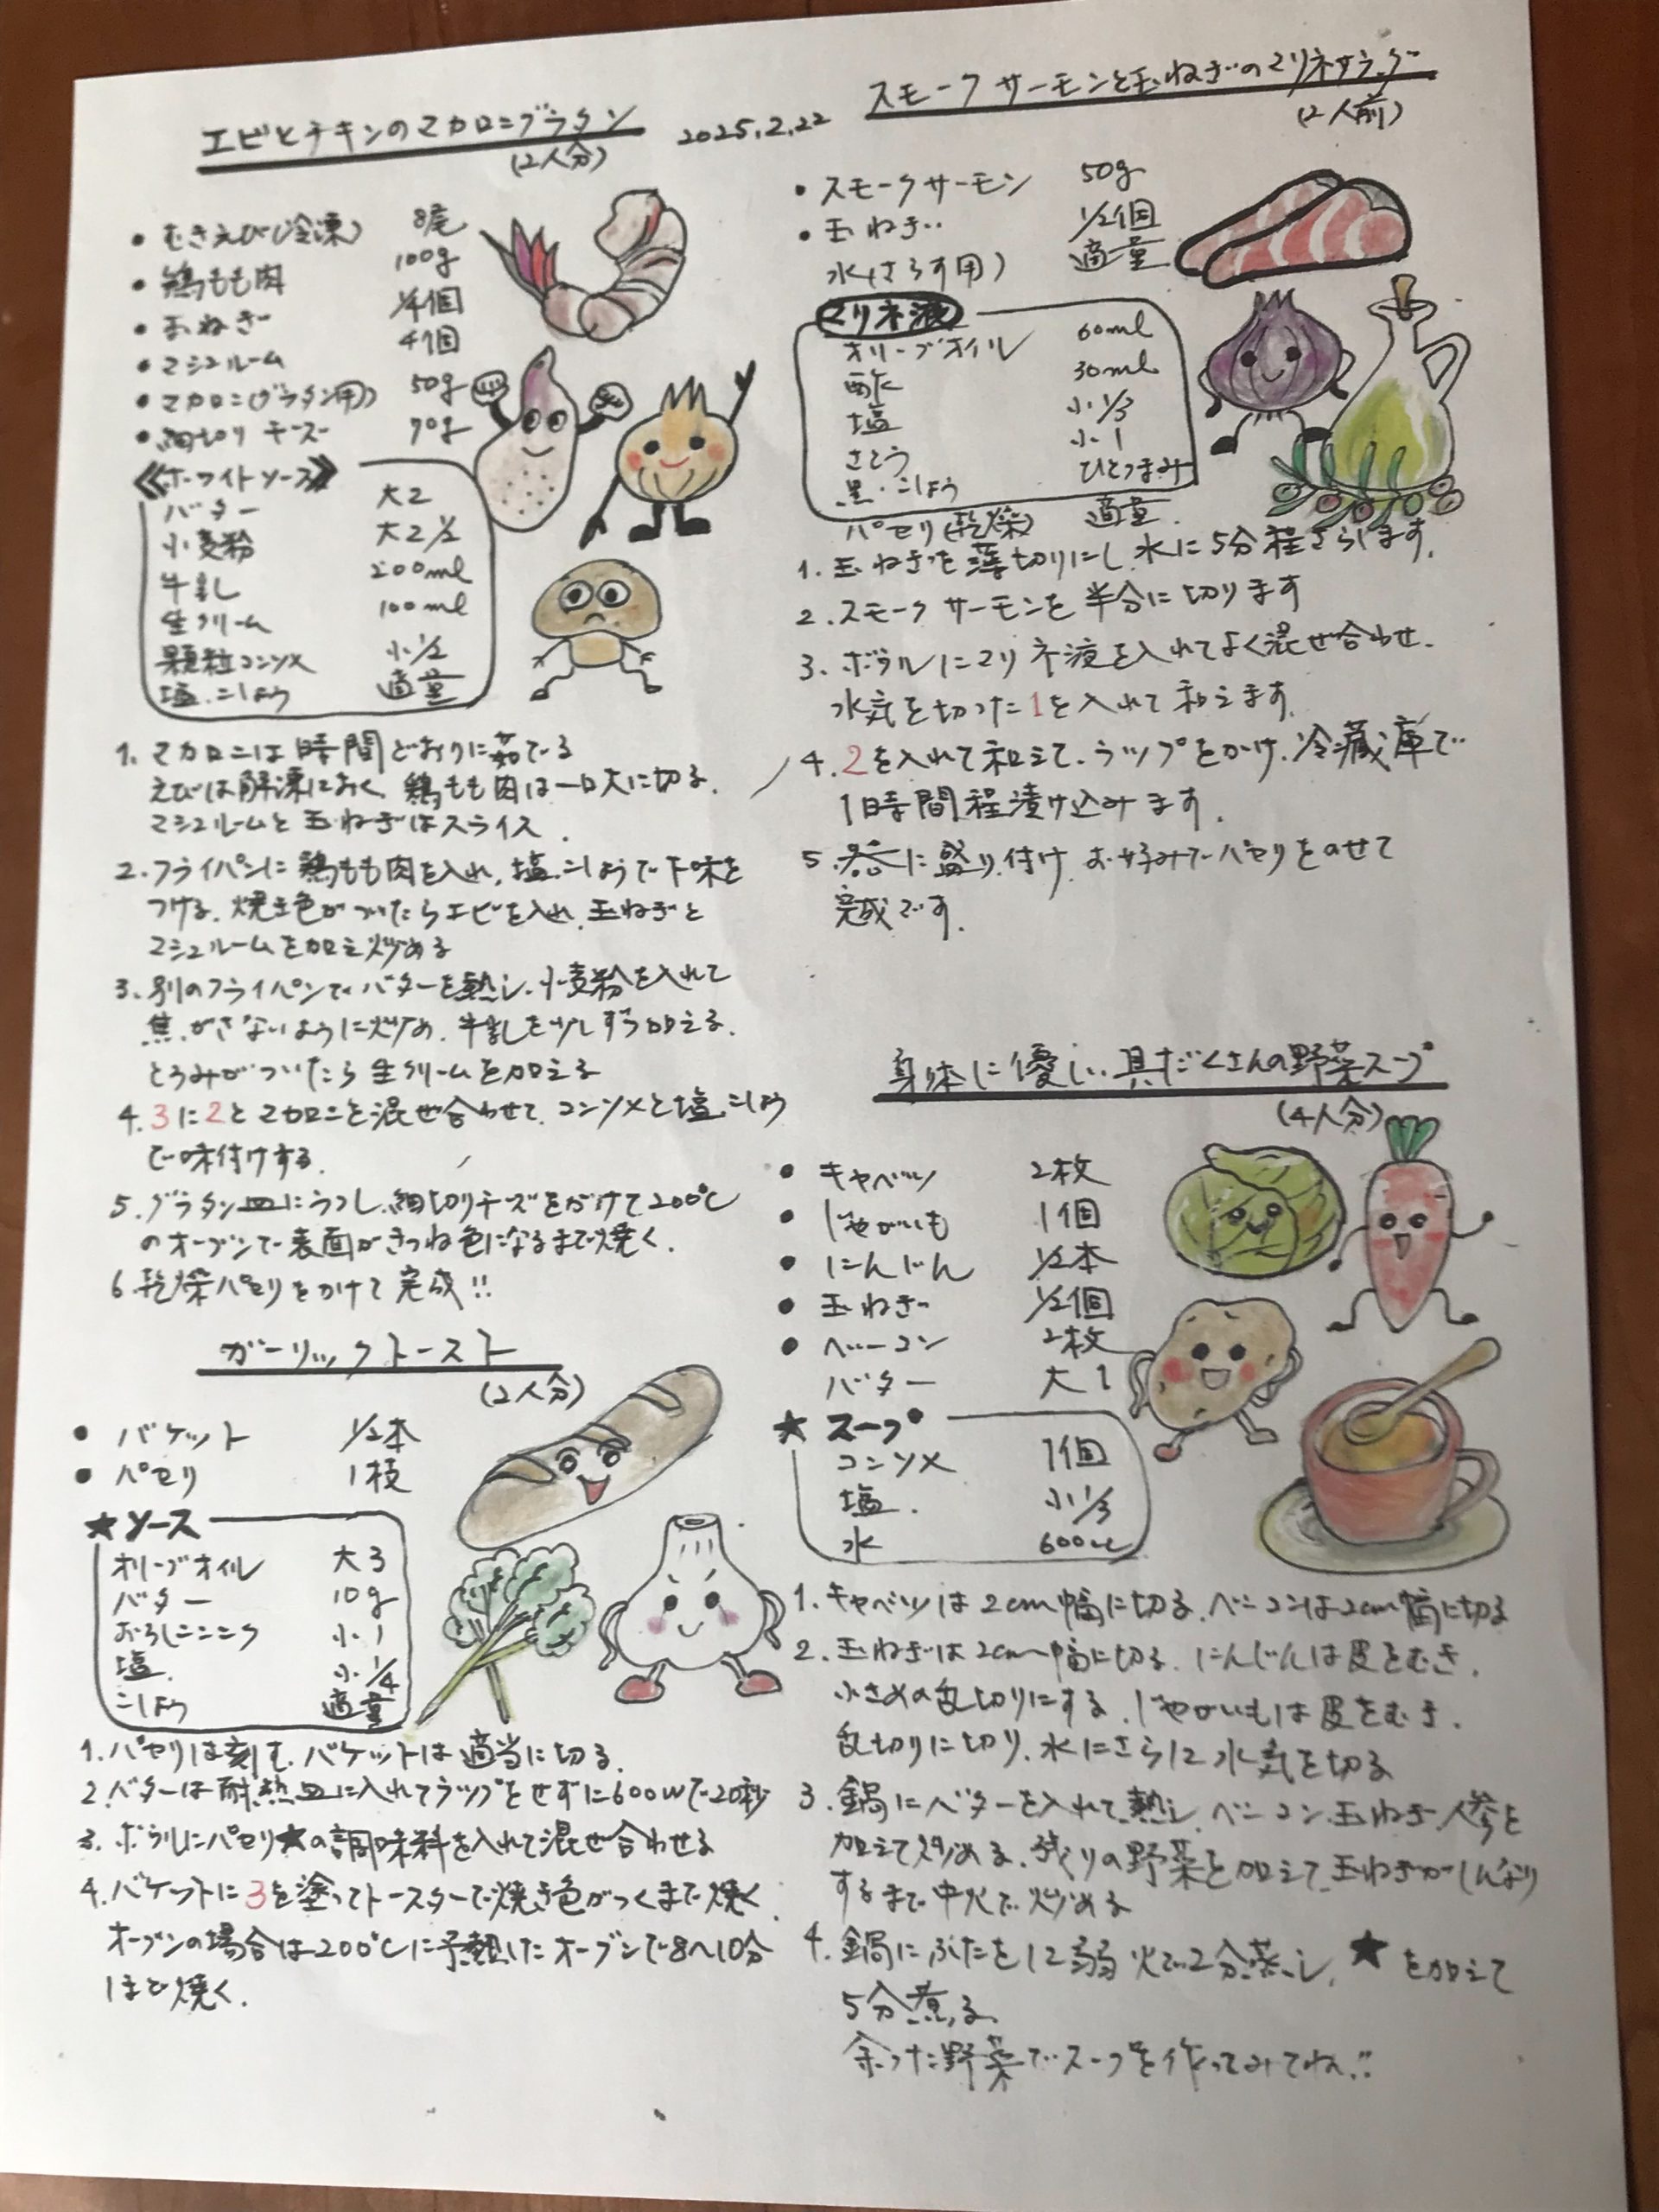 エビとチキンのマカロニグラタン
(2人分)
2025.2.22
・むきえび(冷凍) 8尾
・鶏もも肉 100g
・玉ねぎ 1/4個
・マシュルーム 4個
・マカロニ(グラタン用) 50g
・細切りチーズ 70g
《ホワイトソース》
バター 大2
小麦粉 大2 1/2
牛乳 200ml
生クリーム 100ml
顆粒コンソメ 小1/2
塩.こしょう 適量
1. マカロニは時間どおりに茹でる
えびは解凍しておく、鶏もも肉は一口大に切る.
マシュルームと玉ねぎはスライス.
2. フライパンに鶏もも肉を入れ, 塩.こしょうで下味を
つける. 焼き色がついたらエビを入れ, 玉ねぎと
マシュルームを加え炒める
3. 別のフライパンでバターを熱し、小麦粉を入れて
焦がさないように炒め、牛乳を少しずつ加える.
とろみがついたら生クリームを加える
4. 3に2とマカロニを混ぜ合わせて、コンソメと塩.こしょう
で味付けする.
5. グラタン皿にうつし、細切りチーズをかけて200℃
のオーブンで表面がきつね色になるまで焼く.
6. 乾燥パセリをかけて完成!!
ガーリックトースト
(2人分)
・バケット 1/2本
・パセリ 1枝
★ソース
オリーブオイル 大3
バター 10g
おろしニンニク 小1
塩. 小1/4
こしょう 適量
1. パセリは刻む. バケットは適当に切る.
2. バターは耐熱皿に入れてラップをせずに600Wで20秒
3. ボウルにパセリ★の調味料を入れて混ぜ合わせる
4. バケットに3を塗ってトースターで焼き色がつくまで焼く.
オーブンの場合は200℃に予熱したオーブンで8~10分
ほど焼く.
スモークサーモンと玉ねぎのマリネサラダ
(2人前)
・スモークサーモン 50g
・玉ねぎ 1/2個
水(さらす用) 適量
マリネ液
オリーブオイル 60ml
酢 30ml
塩 小1/3
さとう 小1
黒.こしょう ひとつまみ
パセリ(乾燥) 適量.
1. 玉ねぎを薄切りにし、水に5分程さらします.
2. スモークサーモンを半分に切ります
3. ボウルにマリネ液を入れてよく混ぜ合わせ.
水気を切った1を入れて和えます.
4. 2を入れて和えて、ラップをかけ、冷蔵庫で
1時間程漬け込みます.
5. 器に盛り付け お好みでパセリをのせて
完成です.
身体に優しい具だくさんの野菜スープ
(4人分)
・キャベツ 2枚
・じゃがいも 1個
・にんじん 1/2本
・玉ねぎ 1/2個
・ベーコン 2枚
バター 大1
★スープ
コンソメ 1個
塩. 小1/3
水 600cc
1. キャベツは2cm幅に切る. ベーコンは2cm幅に切る
2. 玉ねぎは2cm幅に切る. にんじんは皮をむき.
小さめの乱切りにする. じゃがいもは皮をむき.
乱切りに切り、水にさらして水気を切る
3. 鍋にバターを入れて熱し、ベーコン.玉ねぎ.人参を
加えて炒める. 残りの野菜を加えて、玉ねぎがしんなり
するまで中火で炒める
4. 鍋にふたをして弱火で2分蒸し、★を加えて
5分煮る.
余った野菜でスープを作ってみてね!!